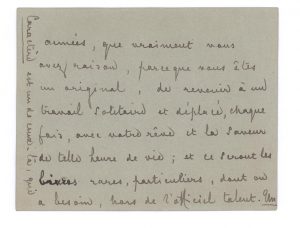 aimées, que vraiment vous
avez raison, parce que vous êtes
un original, de revenir à un
travail solitaire et déplacé, chaque
fois, avec votre rêve et la saveur
de telle heure de vie ; et ce seront les
livres rares, particuliers, dont on
a besoin, hors de l'officiel talent. Un
Caractère est un de ceux-là, qui